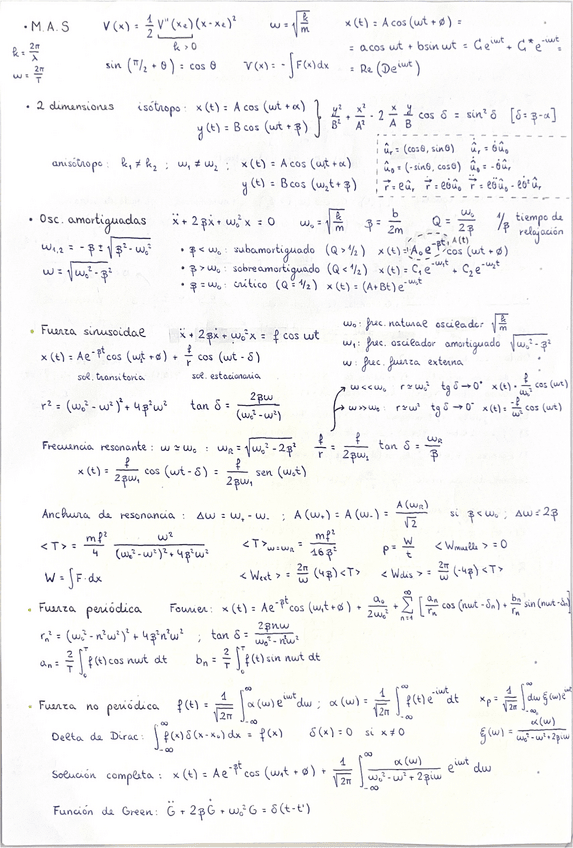 • M.A.S   V(x) = 1/2 V''(x_e)(x-x_e)²   ω = √(k/m)   x(t) = A cos(ωt+ø) =
k = 2π/λ   k>0   = a cos ωt + b sin ωt = C e^{iωt} + C* e^{-iωt} =
ω = 2π/T   sin (π/2 + θ) = cos θ   V(x) = -∫F(x)dx   = Re (D e^{iωt})
• 2 dimensiones   isótropo: x(t) = A cos(ωt+α)
y(t) = B cos(ωt+β)   } y²/B² + x²/A² - 2 x/A y/B cos δ = sin² δ   [δ = β-α]
anisótropo: k₁ ≠ k₂ ; ω₁ ≠ ω₂ ; x(t) = A cos(ω₁t+α)
y(t) = B cos(ω₂t+β)
û_r = (cosθ, sinθ)   û̇_r = θ̇û_θ
û_θ = (-sinθ, cosθ)   û̇_θ = -θ̇û_r
• Osc. amortiguadas   ẍ + 2βẋ + ω₀²x = 0   ω₀ = √(k/m)   β = b/2m   Q = ω₀/2β   1/β tiempo de relajación
ω₁,₂ = -β ± √(β²-ω₀²)   • β < ω₀ : subamortiguado (Q > 1/2)   x(t) = A₀ e^{-βt} cos (ωt+ø)   A(t)
ω = √(ω₀²-β²)   • β > ω₀ : sobreamortiguado (Q < 1/2)   x(t) = C₁ e^{-ω₁t} + C₂ e^{-ω₂t}
• β = ω₀ : crítico (Q = 1/2)   x(t) = (A+Bt) e^{-ω₀t}
• Fuerza sinusoidal   ẍ + 2βẋ + ω₀²x = f cos ωt   ω₀ : frec. natural oscilador √(k/m)
x(t) = Ae^{-βt} cos (ω₁t+ø) + f/r cos (ωt-δ)   ω₁ : frec. oscilador amortiguado √(ω₀²-β²)
sol. transitoria   sol. estacionaria   ω : frec. fuerza externa
r² = (ω₀²-ω²)² + 4β²ω²   tan δ = 2βω/(ω₀²-ω²)   → ω<<ω₀   r≃ω₀²   tg δ → 0⁺   x(t) = f/ω₀² cos(ωt)
→ ω>>ω₀   r≃ω²   tg δ → 0⁻   x(t) = -f/ω² cos(ωt)
Frecuencia resonante : ω ≃ ω₀ : ω_R = √(ω₀²-2β²)   f/r = f/2βω₁   tan δ = ω_R/β
x(t) = f/2βω₁ cos (ωt-δ) = f/2βω₁ sen (ω₀t)
Anchura de resonancia : Δω = ω₊ - ω₋ ; A(ω₊) = A(ω₋) = A(ω_R)/√2   si β < ω₀ ; Δω ≃ 2β
<T> = mf²/4 ω²/((ω₀²-ω²)² + 4β²ω²)   <T>_{ω=ω_R} = mf²/16β²   P = W/t   <W_muelle> = 0
W = ∫F·dx   <W_ext> = 2π/ω (4β)<T>   <W_dis> = 2π/ω (-4β)<T>
• Fuerza periódica   Fourier: x(t) = Ae^{-βt} cos (ω₁t+ø) + a₀/2ω₀² + Σ_{n=1}^{∞} [a_n/r_n cos (nωt-δ_n) + b_n/r_n sin (nωt-δ_n)]
r_n² = (ω₀²-n²ω²)² + 4β²n²ω² ; tan δ = 2βnω/(ω₀²-n²ω²)
a_n = 2/T ∫₀^T f(t) cos nωt dt   b_n = 2/T ∫₀^T f(t) sin nωt dt
• Fuerza no periódica   f(t) = 1/√2π ∫_{-∞}^{∞} α(ω)e^{iωt}dω ; α(ω) = 1/√2π ∫_{-∞}^{∞} f(t)e^{-iωt}dt   x_p = 1/√2π ∫_{-∞}^{∞} dω ξ(ω)e^{iωt}
Delta de Dirac: ∫_{-∞}^{∞} f(x)δ(x-x₀)dx = f(x)   δ(x) = 0 si x≠0   ξ(ω) = α(ω)/(ω₀²-ω²+2βiω)
Solución completa : x(t) = Ae^{-βt} cos (ω₁t+ø) + 1/√2π ∫_{-∞}^{∞} α(ω)/(ω₀²-ω²+2βiω) e^{iωt} dω
Función de Green: G̈ + 2βĠ + ω₀²G = δ(t-t')